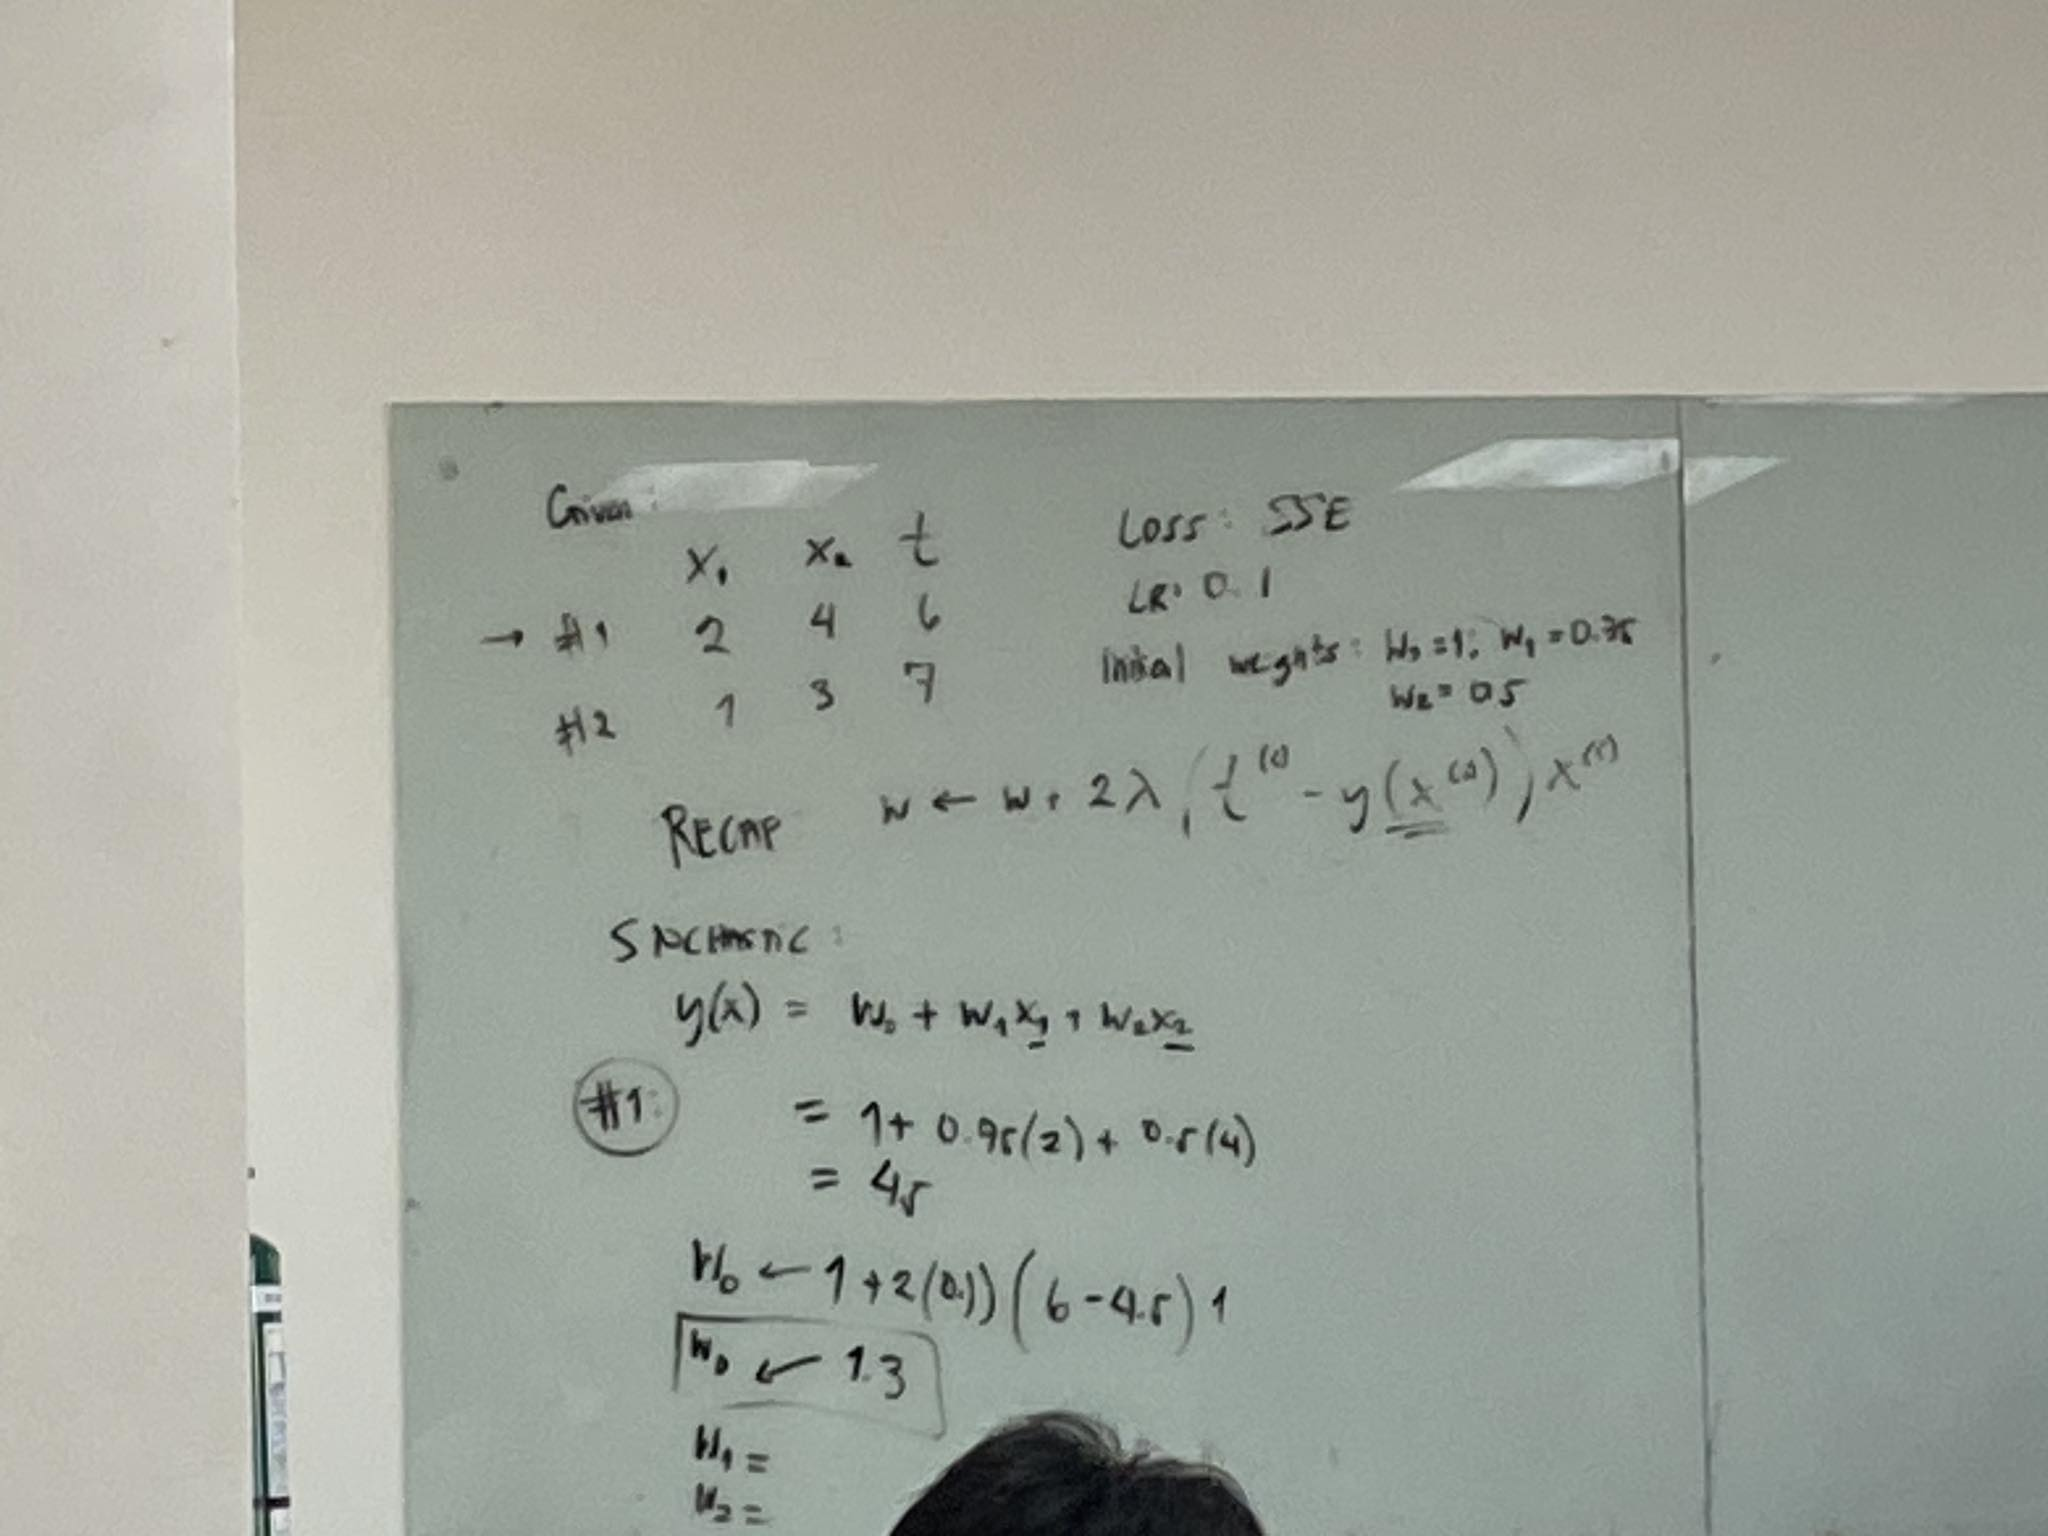 Given:
x₁ x₂ t
→ #1 2 4 6
#2 1 3 7
Loss: SSE
LR: 0.1
Initial weights: W₀ = 1; W₁ = 0.75
W₂ = 0.5
RECAP w ← w + 2λ (t⁽ⁱ⁾ - y(x⁽ⁱ⁾)) x⁽ⁱ⁾
STOCHASTIC:
y(x) = W₀ + W₁x₁ + W₂x₂
#1: = 1 + 0.75(2) + 0.5(4)
= 4.5
W₀ ← 1 + 2(0.1))(6 - 4.5) 1
W₀ ← 1.3
W₁ =
W₂ =